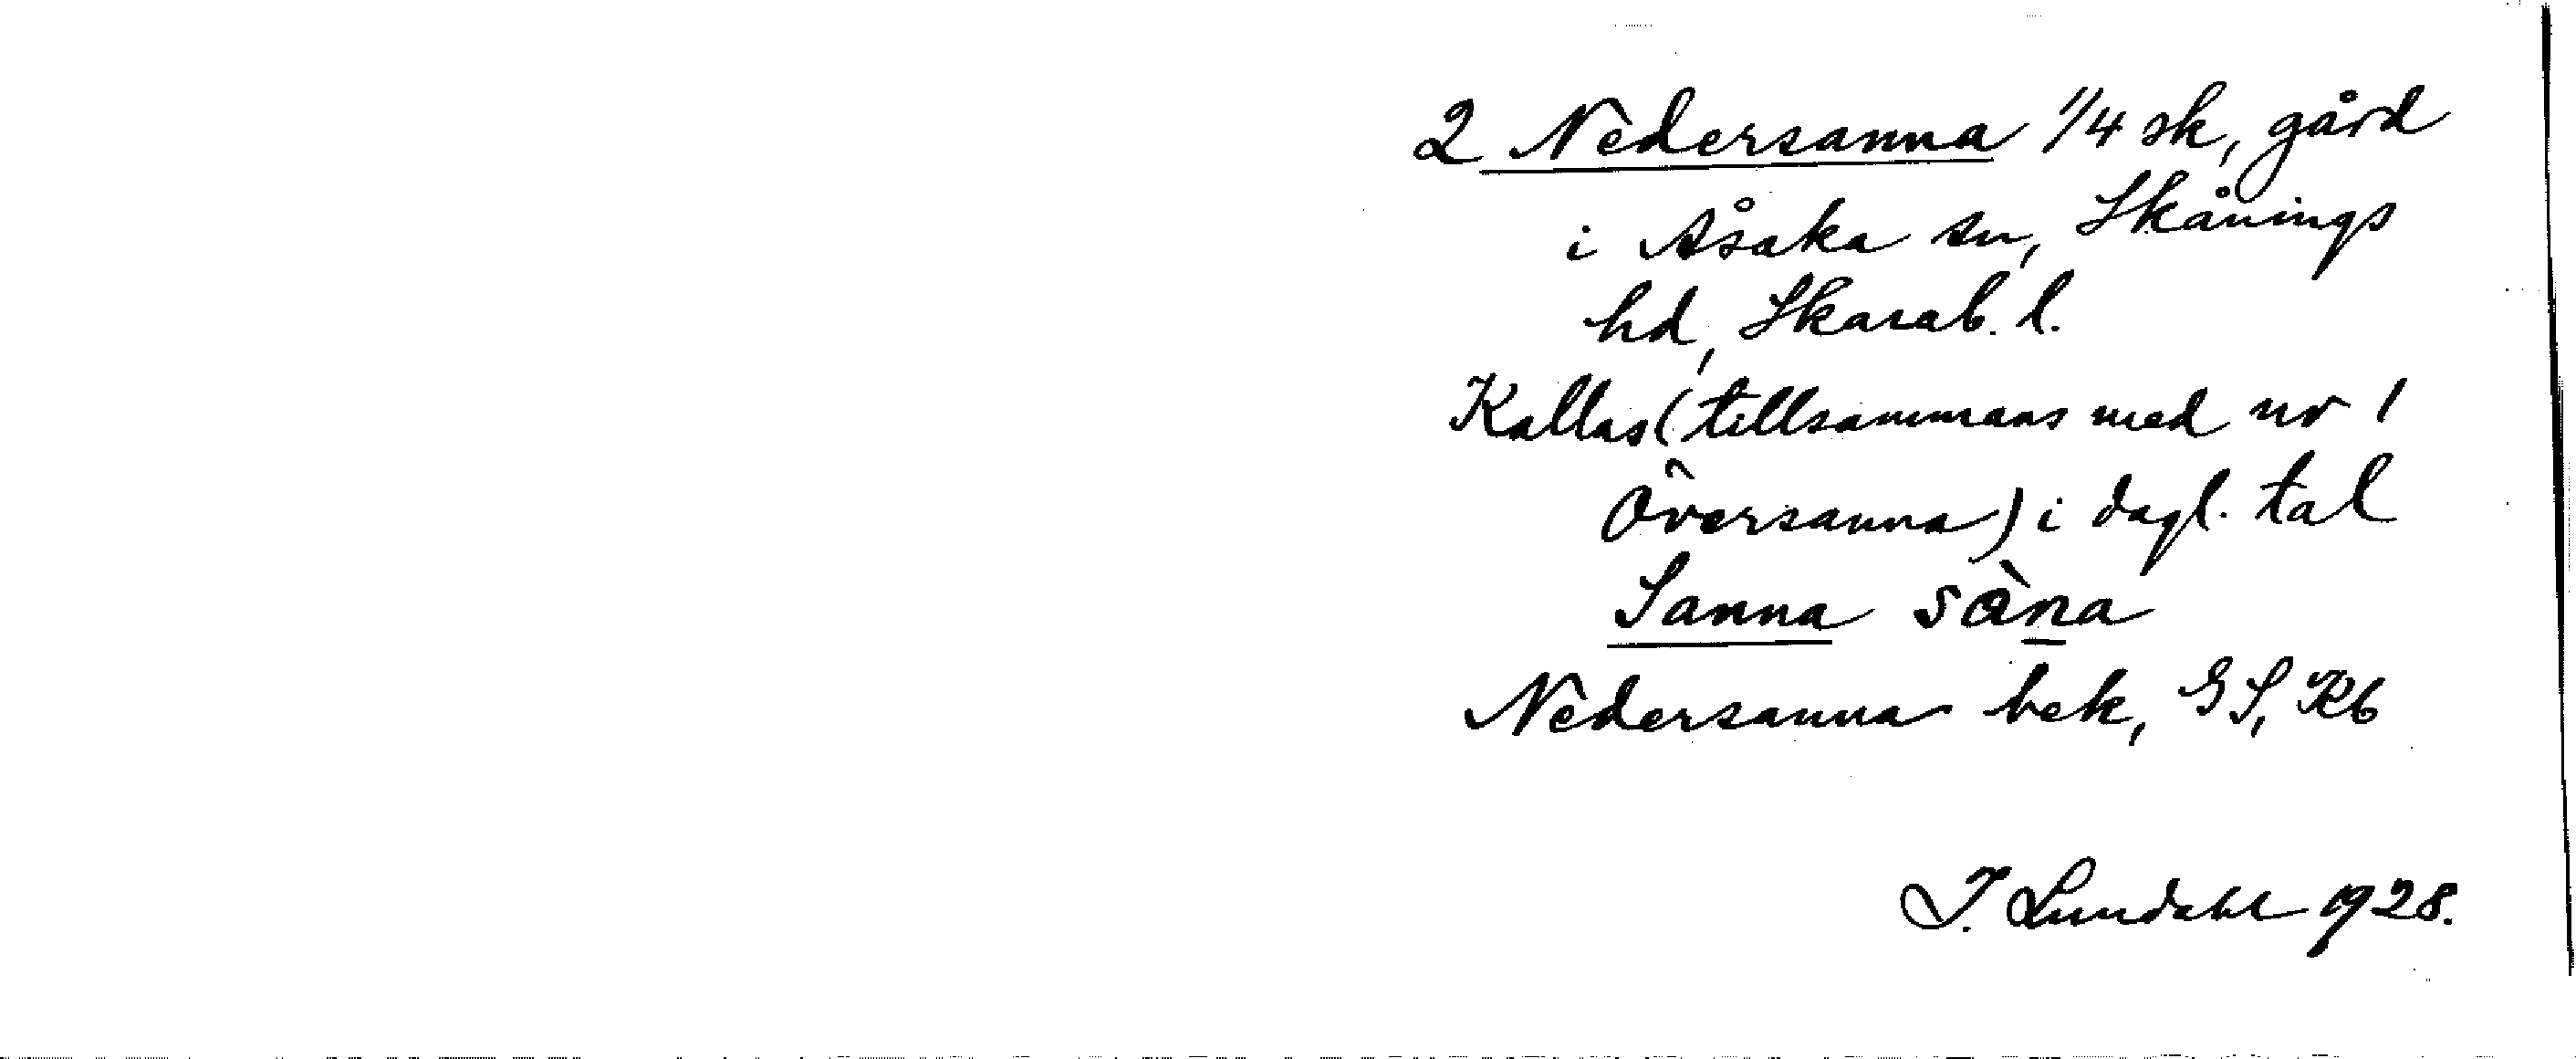 2 Nedersanna 1/4 sk, gård
i Åsaka sn, Skånings
hd, Skarab. l.
Kallas (tillsammans med nr 1
Översanna) i dagl. tal
Sanna sàna
Nedersanna bek, GS, Kb
I. Lundahl 1928.